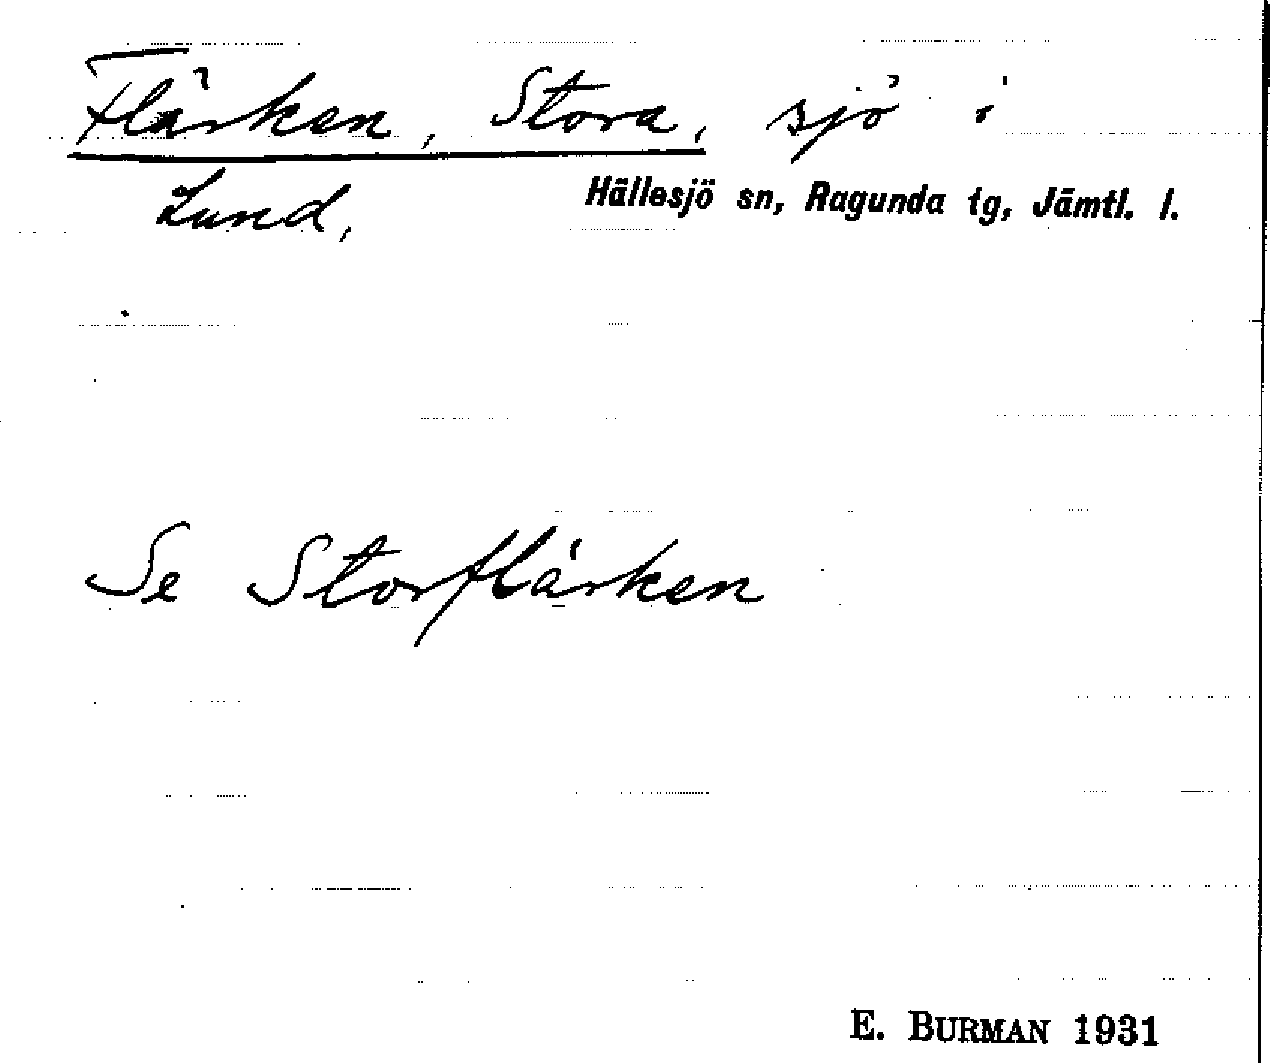 Flärken, Stora, sjö i
Lund, Hällesjö sn, Ragunda tg, Jämtl. l.
Se Storflärken
E. BURMAN 1931